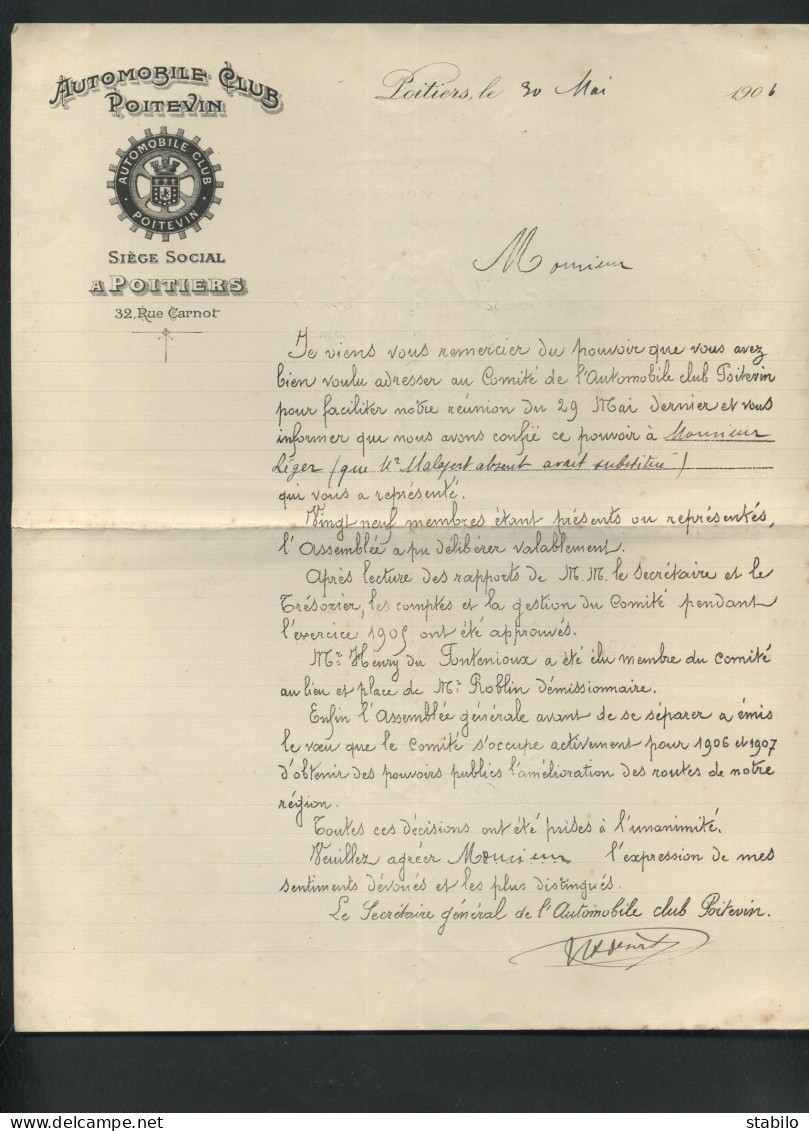 AUTOMOBILE CLUB
POITEVIN
AUTOMOBILE CLUB
POITEVIN
SIÈGE SOCIAL
A POITIERS
32, Rue Carnot
Poitiers, le 30 Mai 1906
Monsieur
Je viens vous remercier du pouvoir que vous avez
bien voulu adresser au Comité de l'Automobile club Poitevin
pour faciliter notre réunion du 29 Mai dernier et vous
informer que nous avons confié ce pouvoir à Monsieur
Léger (que Mr Malapert absent avait substitué)
qui vous a représenté.
Vingt neuf membres étant présents ou représentés,
l'Assemblée a pu délibérer valablement.
Après lecture des rapports de M.M. le secrétaire et le
Trésorier, les comptes et la gestion du Comité pendant
l'exercice 1905 ont été approuvés.
Mr Henry du Fontenioux a été élu membre du comité
au lieu et place de Mr Roblin démissionnaire.
Enfin l'Assemblée générale avant de se séparer a émis
le vœu que le comité s'occupe activement pour 1906 et 1907
d'obtenir des pouvoirs publics l'amélioration des routes de notre
région.
Toutes ces décisions ont été prises à l'unanimité.
Veuillez agréer Monsieur l'expression de mes
sentiments dévoués et les plus distingués.
Le Secrétaire général de l'Automobile club Poitevin.
delcampe.net
stabilo